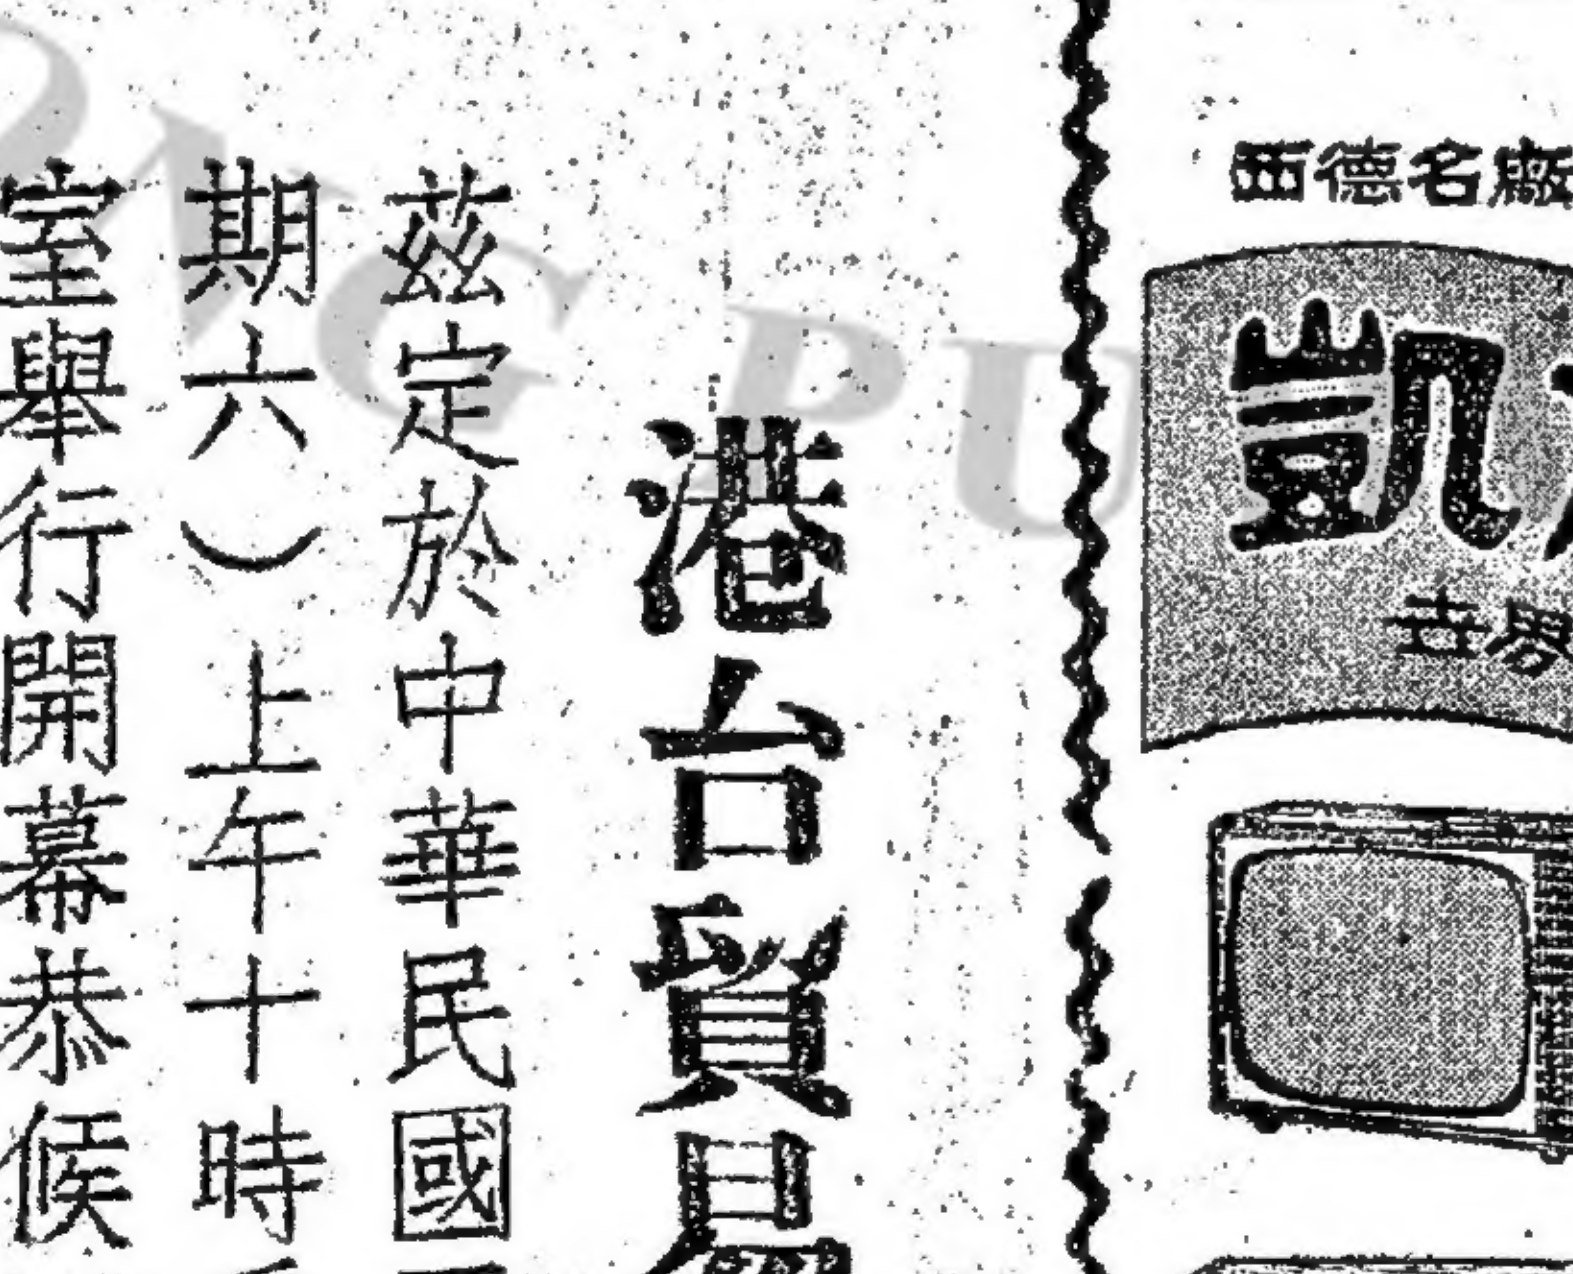 西德名廠
凱
世界
港台貿易
茲定於中華民國
期六）上午十時
室舉行開幕恭候
NG PU